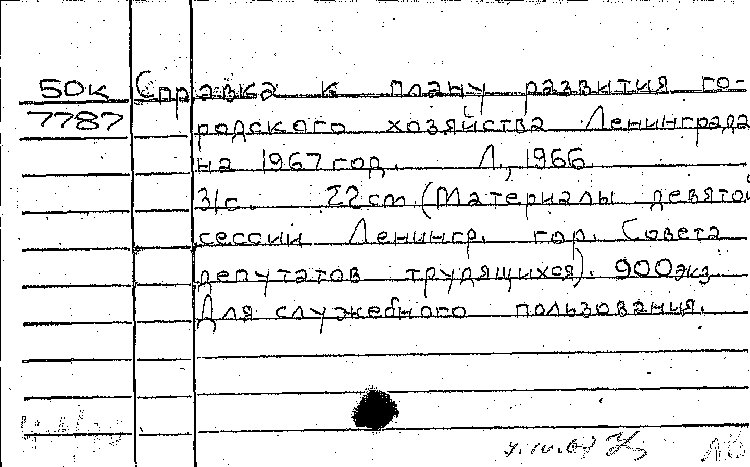 50к Справка к плану развития го-
7787 родского хозяйства Ленинграда
на 1967 год. Л., 1966
31с. 22cm. (Материалы девятой
сессии Ленингр. гор. Совета
депутатов трудящихся). 900экз
Для служебного пользования.